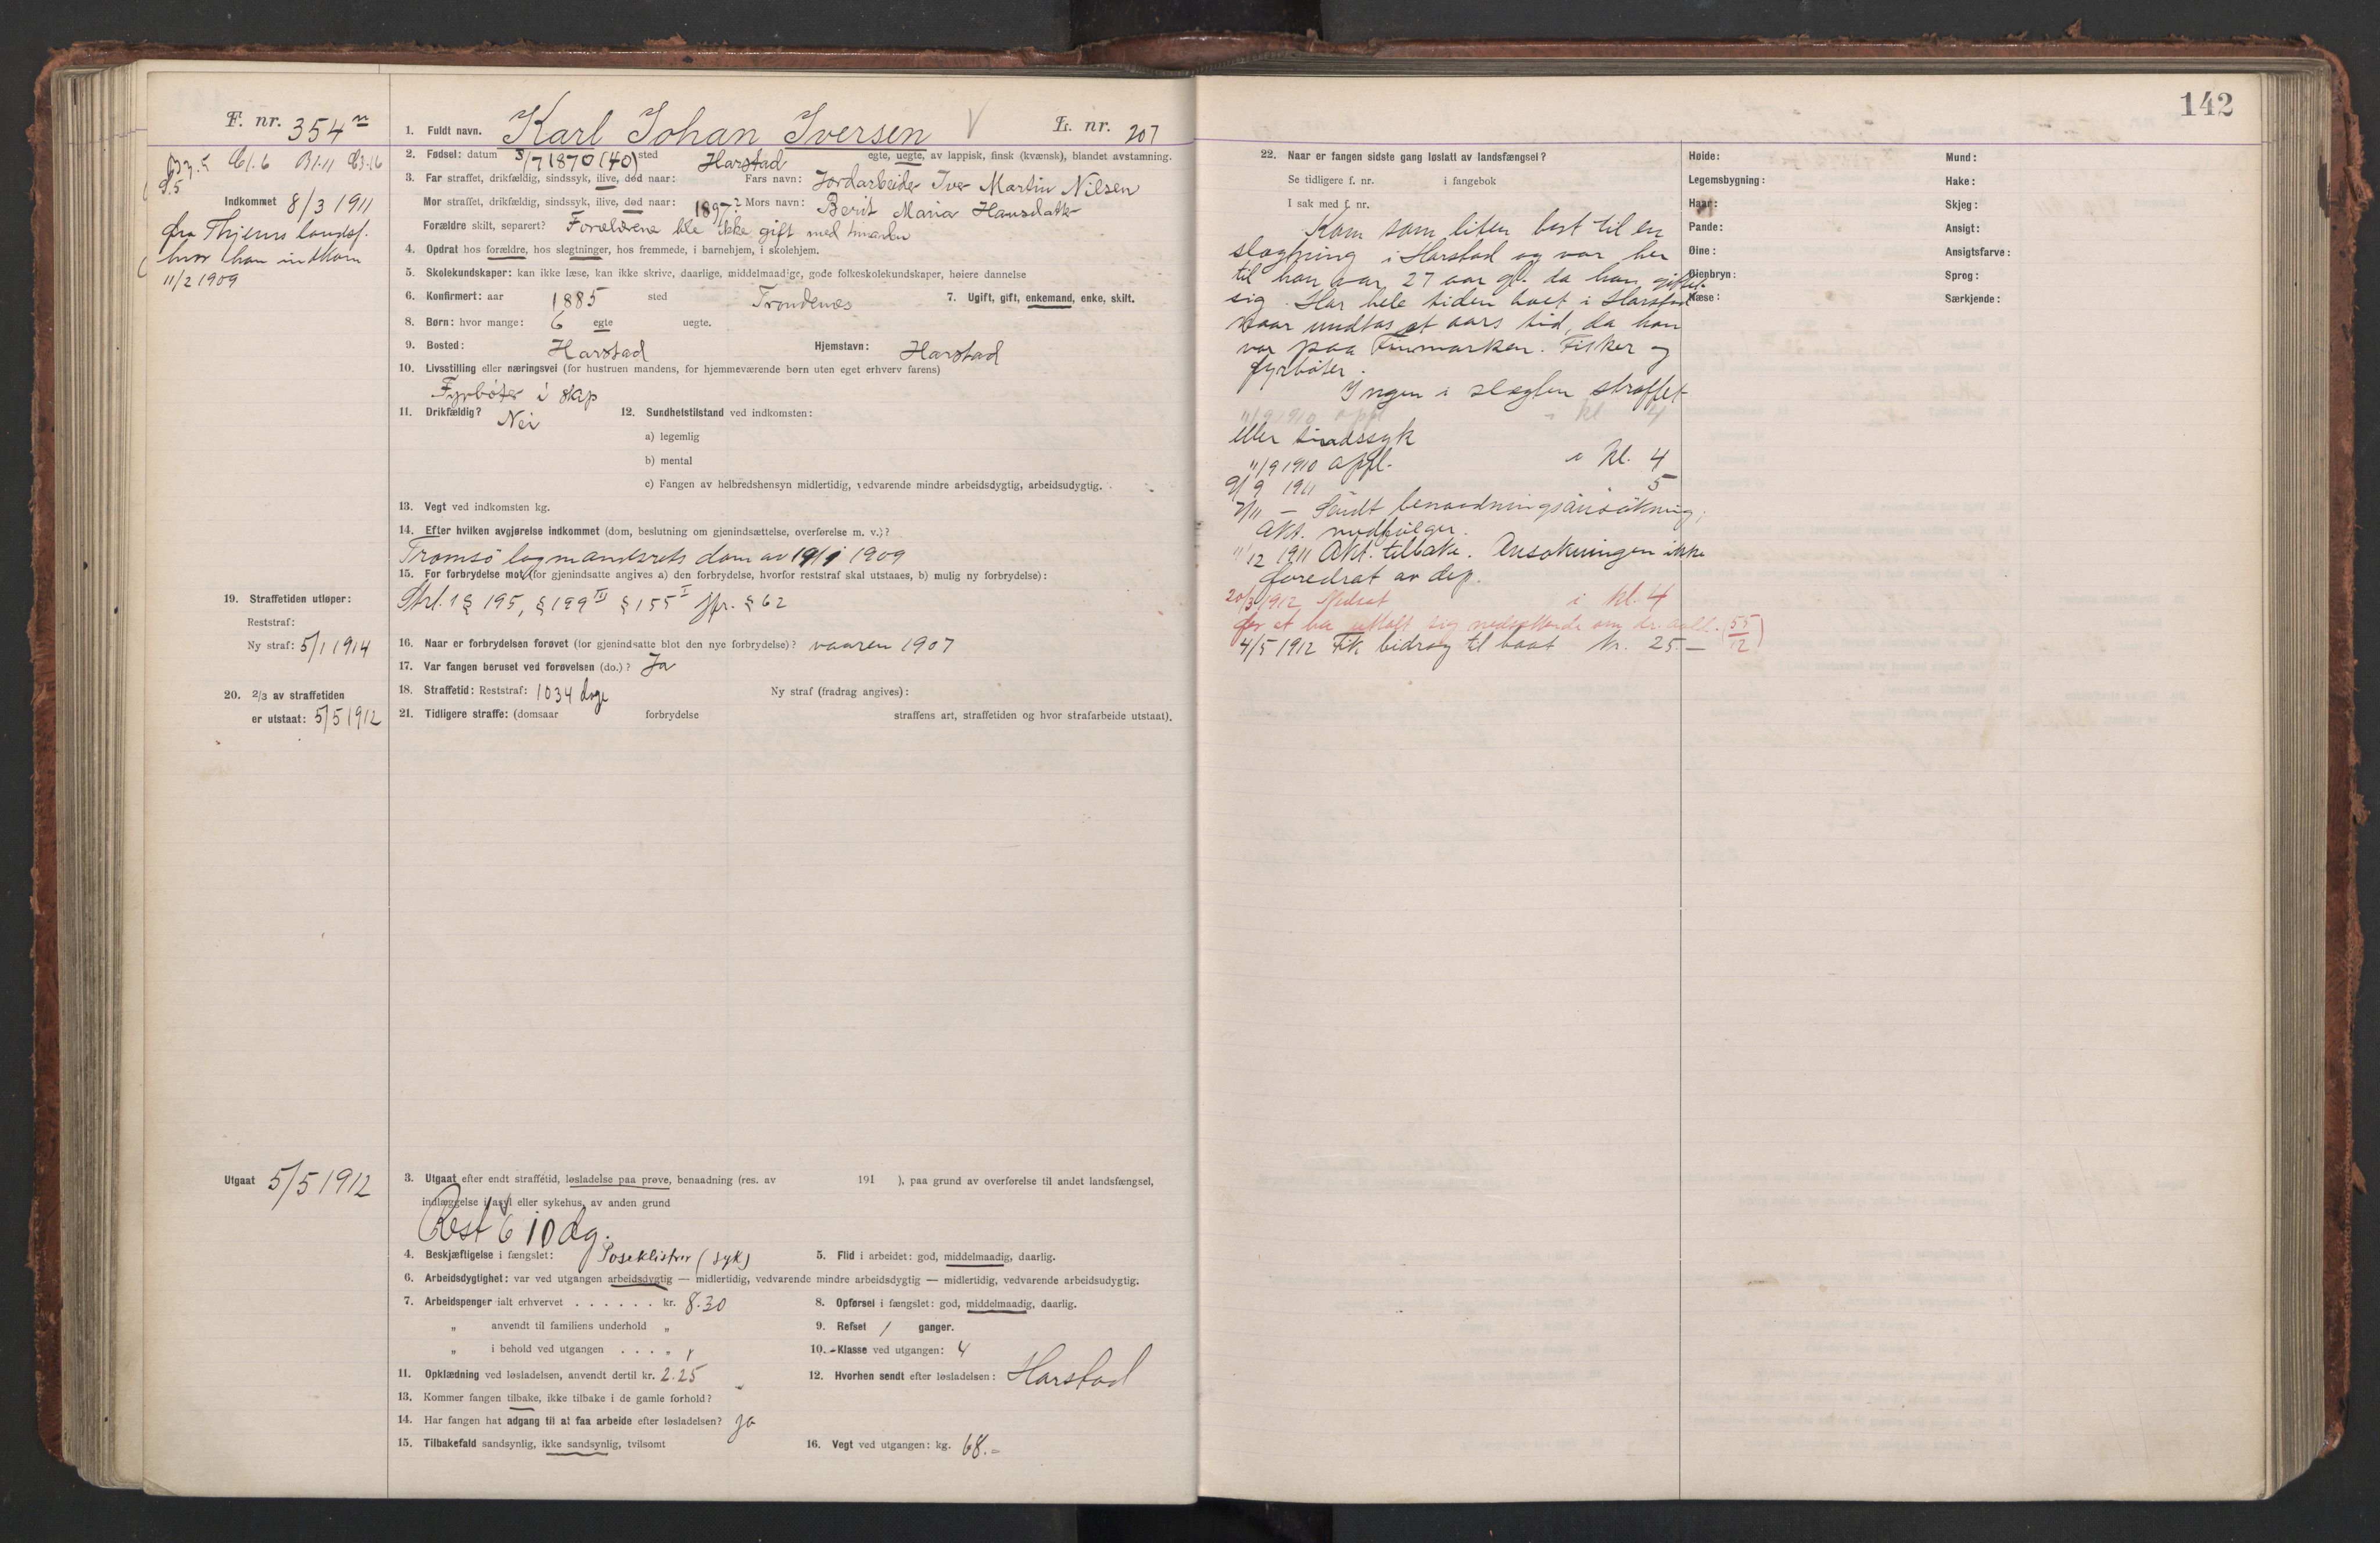 142
F. nr. 354
1. Fuldt navn. Karl Johan Iversen V
L. nr. 207
2. Fødsel: datum 3/7 1870 (40) sted Harstad egte, uegte, av lappisk, finsk (kvænsk), blandet avstamning.
3. Far straffet, drikfældig, sindssyk, ilive, død naar: Fars navn: Jordarbeider Iver Martin Nilsen
Mor straffet, drikfældig, sindssyk, ilive, død naar: 1897? Mors navn: Berit Maria Hansdatt
Forældre skilt, separert? Forældrene ble ikke gift med hinanden
4. Opdrat hos forældre, hos slegtninger, hos fremmede, i barnehjem, i skolehjem.
5. Skolekundskaper: kan ikke læse, kan ikke skrive, daarlige, middelmaadige, gode folkeskolekundskaper, høiere dannelse
6. Konfirmert: aar 1885 sted Trondenes 7. Ugift, gift, enkemand, enke, skilt.
8. Børn: hvor mange: 6 egte uegte.
9. Bosted: Harstad Hjemstavn: Harstad
10. Livsstilling eller næringsvei (for hustruen mandens, for hjemmeværende børn uten eget erhverv farens)
Fyrbøter & skp
11. Drikfældig? Nei 12. Sundhetstilstand ved indkomsten:
a) legemlig
b) mental
c) Fangen av helbredshensyn midlertidig, vedvarende mindre arbeidsdygtig, arbeidsudygtig.
13. Vegt ved indkomsten kg.
14. Efter hvilken avgjørelse indkommet (dom, beslutning om gjenindsættelse, overførelse m. v.)?
Tromsø lagmandsrets dom av 19/1 1909
15. For forbrydelse mot (for gjenindsatte angives a) den forbrydelse, hvorfor reststraf skal utstaaes, b) mulig ny forbrydelse):
Strl. § 195, § 199 II § 155 I jfr. § 62
16. Naar er forbrydelsen forøvet (for gjenindsatte blot den nye forbrydelse)? vaaren 1907
17. Var fangen beruset ved forøvelsen (do.)? Ja
18. Straffetid: Reststraf: 1034 dage Ny straf (fradrag angives):
21. Tidligere straffe: (domsaar forbrydelse straffens art, straffetiden og hvor strafarbeide utstaat).
Indkommet 8/3 1911
fra Thjems landsf.
hvor han indkom
11/2 1909
19. Straffetiden utløper:
Reststraf:
Ny straf: 5/1 1914
20. 2/3 av straffetiden
er utstaat: 5/5 1912
Utgaat 5/5 1912
3. Utgaat efter endt straffetid, løsladelse paa prøve, benaadning (res. av 191 ), paa grund av overførelse til andet landsfængsel,
indlæggelse i asyl eller sykehus, av anden grund
Rest 610 dg.
4. Beskjæftigelse i fængslet: Poseklistrer (syk) 5. Flid i arbeidet: god, middelmaadig, daarlig.
6. Arbeidsdygtighet: var ved utgangen arbeidsdygtig — midlertidig, vedvarende mindre arbeidsdygtig — midlertidig, vedvarende arbeidsudygtig.
7. Arbeidspenger ialt erhvervet . . . . . . kr. 8.30 8. Opførsel i fængslet: god, middelmaadig, daarlig.
„ anvendt til familiens underhold „ 9. Refset 1 ganger.
„ i behold ved utgangen . . . „ 10. Klasse ved utgangen: 4
11. Opklædning ved løsladelsen, anvendt dertil kr. 2.25 12. Hvorhen sendt efter løsladelsen: Harstad
13. Kommer fangen tilbake, ikke tilbake i de gamle forhold?
14. Har fangen hat adgang til at faa arbeide efter løsladelsen? Ja
15. Tilbakefald sandsynlig, ikke sandsynlig, tvilsomt 16. Vegt ved utgangen: kg. 68.-
22. Naar er fangen sidste gang løslatt av landsfængsel?
Se tidligere f. nr. i fangebok
I sak med f. nr.
Kom som liten bort til en
slægtning i Harstad og var her
til han var 27 aar gl. da han giftet
sig. Har hele tiden boet i Harstad
naar undtas et aars tid, da han
var paa Finmarken. Fisker og
fyrbøter.
Ingen i slægten straffet
11/9 1910 oppl i kl 4
eller sindssyk
11/9 1910 oppl. i kl. 4
9/9 1911 5
7/11 — Sendt benaadningsansökning;
Akt. medfølger.
11/12 1911 Akt. tilbake. Ansøkningen ikke
foredrat av dep.
20/3 1912 Nedsat i kl. 4
for at ha uttalt sig nedsættende om dr.
4/5 1912 Fik bidrag til baat Kr. 25.—
Høide:
Legemsbygning:
Haar:
Pande:
Øine:
Øienbryn:
Næse:
Mund:
Hake:
Skjeg:
Ansigt:
Ansigtsfarve:
Sprog:
Særkjende: